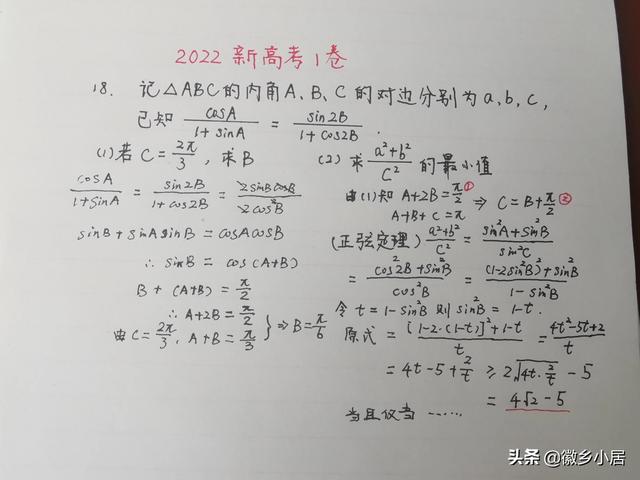 2022 新高考 1 卷
18. 记△ABC的内角A、B、C的对边分别为a,b,c,
已知 cosA/(1+sinA) = sin2B/(1+cos2B).
(1)若 C=2π/3, 求B
cosA/(1+sinA) = sin2B/(1+cos2B) = 2sinBcosB/2cos²B
sinB+sinAsinB=cosAcosB
∴ sinB = cos(A+B)
B+(A+B)=π/2
∴A+2B=π/2
由C=2π/3, A+B=π/3 } ⇒B=π/6
(2) 求 (a²+b²)/c² 的最小值
由(1)知 A+2B=π/2 ① ⇒ C=B+π/2 ②
A+B+C=π
(正弦定理) (a²+b²)/c² = (sin²A+sin²B)/sin²C
= (cos²2B+sin²B)/cos²B = ((1-2sin²B)²+sin²B)/(1-sin²B)
令 t=1-sin²B 则 sin²B=1-t.
原式 = ([1-2·(1-t)]²+1-t)/t = (4t²-5t+2)/t
= 4t-5+2/t ≥ 2√(4t·2/t) -5
= 4√2-5
当且仅当 ……
头条 @徽乡小居